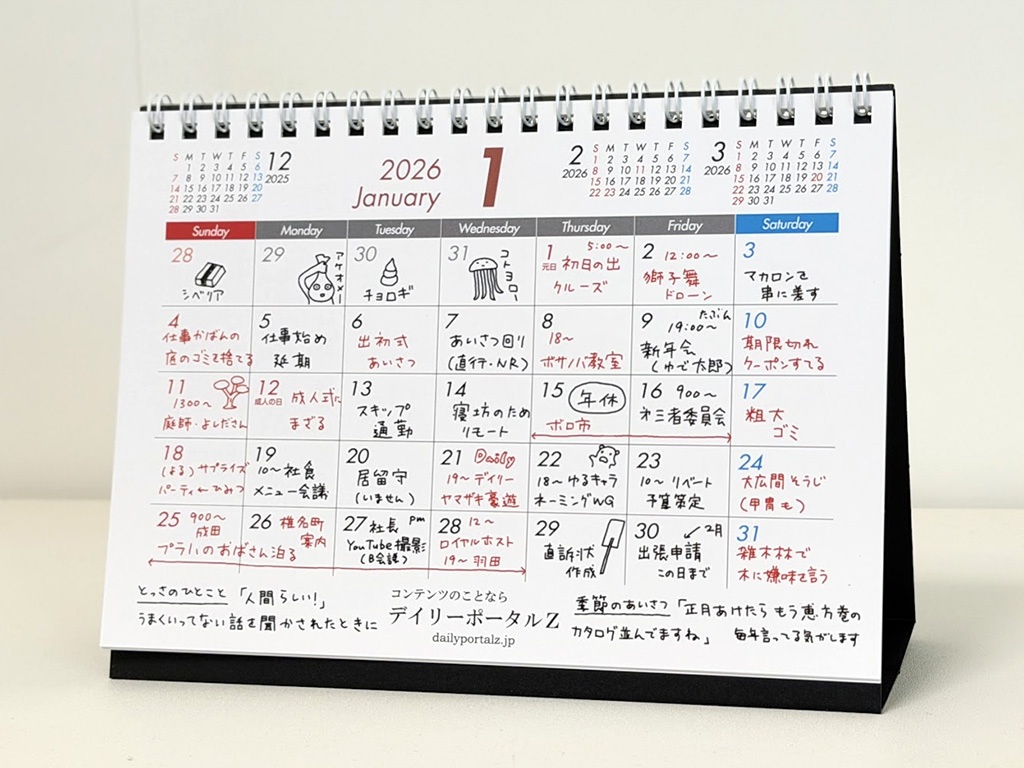 S M T W T F S
1 2 3 4 5 6
7 8 9 10 11 12 13
14 15 16 17 18 19 20
21 22 23 24 25 26 27
28 29 30 31
12
2025
2026
January
1
2
2026
S M T W T F S
1 2 3 4 5 6 7
8 9 10 11 12 13 14
15 16 17 18 19 20 21
22 23 24 25 26 27 28
3
2026
S M T W T F S
1 2 3 4 5 6 7
8 9 10 11 12 13 14
15 16 17 18 19 20 21
22 23 24 25 26 27 28
29 30 31
Sunday Monday Tuesday Wednesday Thursday Friday Saturday
28
シベリア
29
アケオメー
30
チョロギ
31
コトヨロー
1
元日
5:00〜
初日の出
クルーズ
2
12:00〜
獅子舞
ドローン
3
マカロンを
串に差す
4
仕事かばんの
底のゴミを捨てる
5
仕事始め
延期
6
出初式
あいさつ
7
あいさつ回り
(直行・NR)
8
18〜
ボサノバ教室
9
たぶん
19:00〜
新年会
(ゆで太郎)
10
期限切れ
クーポンすてる
11
1300〜
庭師・よしださん
12
成人の日
成人式に
まざる
13
スキップ
通勤
14
寝坊のため
リモート
15
年休
ボロ市
16
900〜
第三者委員会
17
粗大
ゴミ
18
(よる)サプライズ
パーティ←ひみつ
19
10〜社食
メニュー会議
20
居留守
(いません)
21
Daily
19〜デイリー
ヤマザキ豪遊
22
18〜ゆるキャラ
ネーミングWG
23
10〜リベート
予算策定
24
大広間そうじ
(甲冑も)
25
900〜
成田
プラハのおばさん泊る
26
椎名町
案内
27
社長 pm
YouTube撮影
(B会議)
28
12〜
ロイヤルホスト
19〜羽田
29
直訴状
作成
30
2月
出張申請
この日まで
31
雑木林で
木に嫌味を言う
とっさのひとこと 「人間らしい!」
うまくいってない話を聞かされたときに
コンテンツのことなら
デイリーポータルZ
dailyportalz.jp
季節のあいさつ「正月あけたらもう恵方巻の
カタログ並んでますね」 毎年言ってる気がします